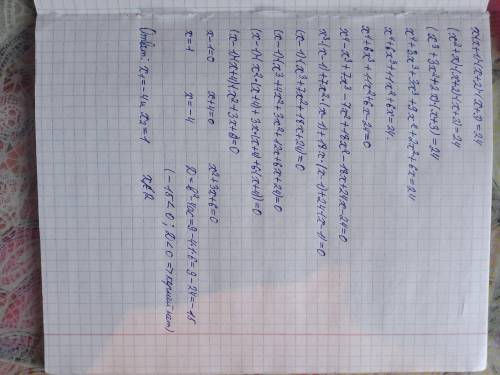 x(x+1)(x+2)(x+3)=24
(x²+x)(x+2)(x+3)=24
(x³+3x²+2x)(x+3)=24
x⁴+3x³+3x³+9x²+2x²+6x=24
x⁴+6x³+11x²+6x=24
x⁴+6x³+11x²+6x-24=0
x⁴-x³+7x³-7x²+18x²-18x+24x-24=0
x³(x-1)+7x²·(x-1)+18x·(x-1)+24(x-1)=0
(x-1)(x³+7x²+18x+24)=0
(x-1)(x³+4x²+3x²+12x+6x+24)=0
(x-1)(x²·(x+4)+3x·(x+4)+6(x+4))=0
(x-1)(x+4)(x²+3x+6)=0
x-1=0 x+4=0 x²+3x+6=0
x=1 x=-4 D=b²-4ac=9-4·1·6=9-24=-15
(-15<0; D<0 => корней нет)
Ответ: x₁=-4 и x₂=1 x∉R